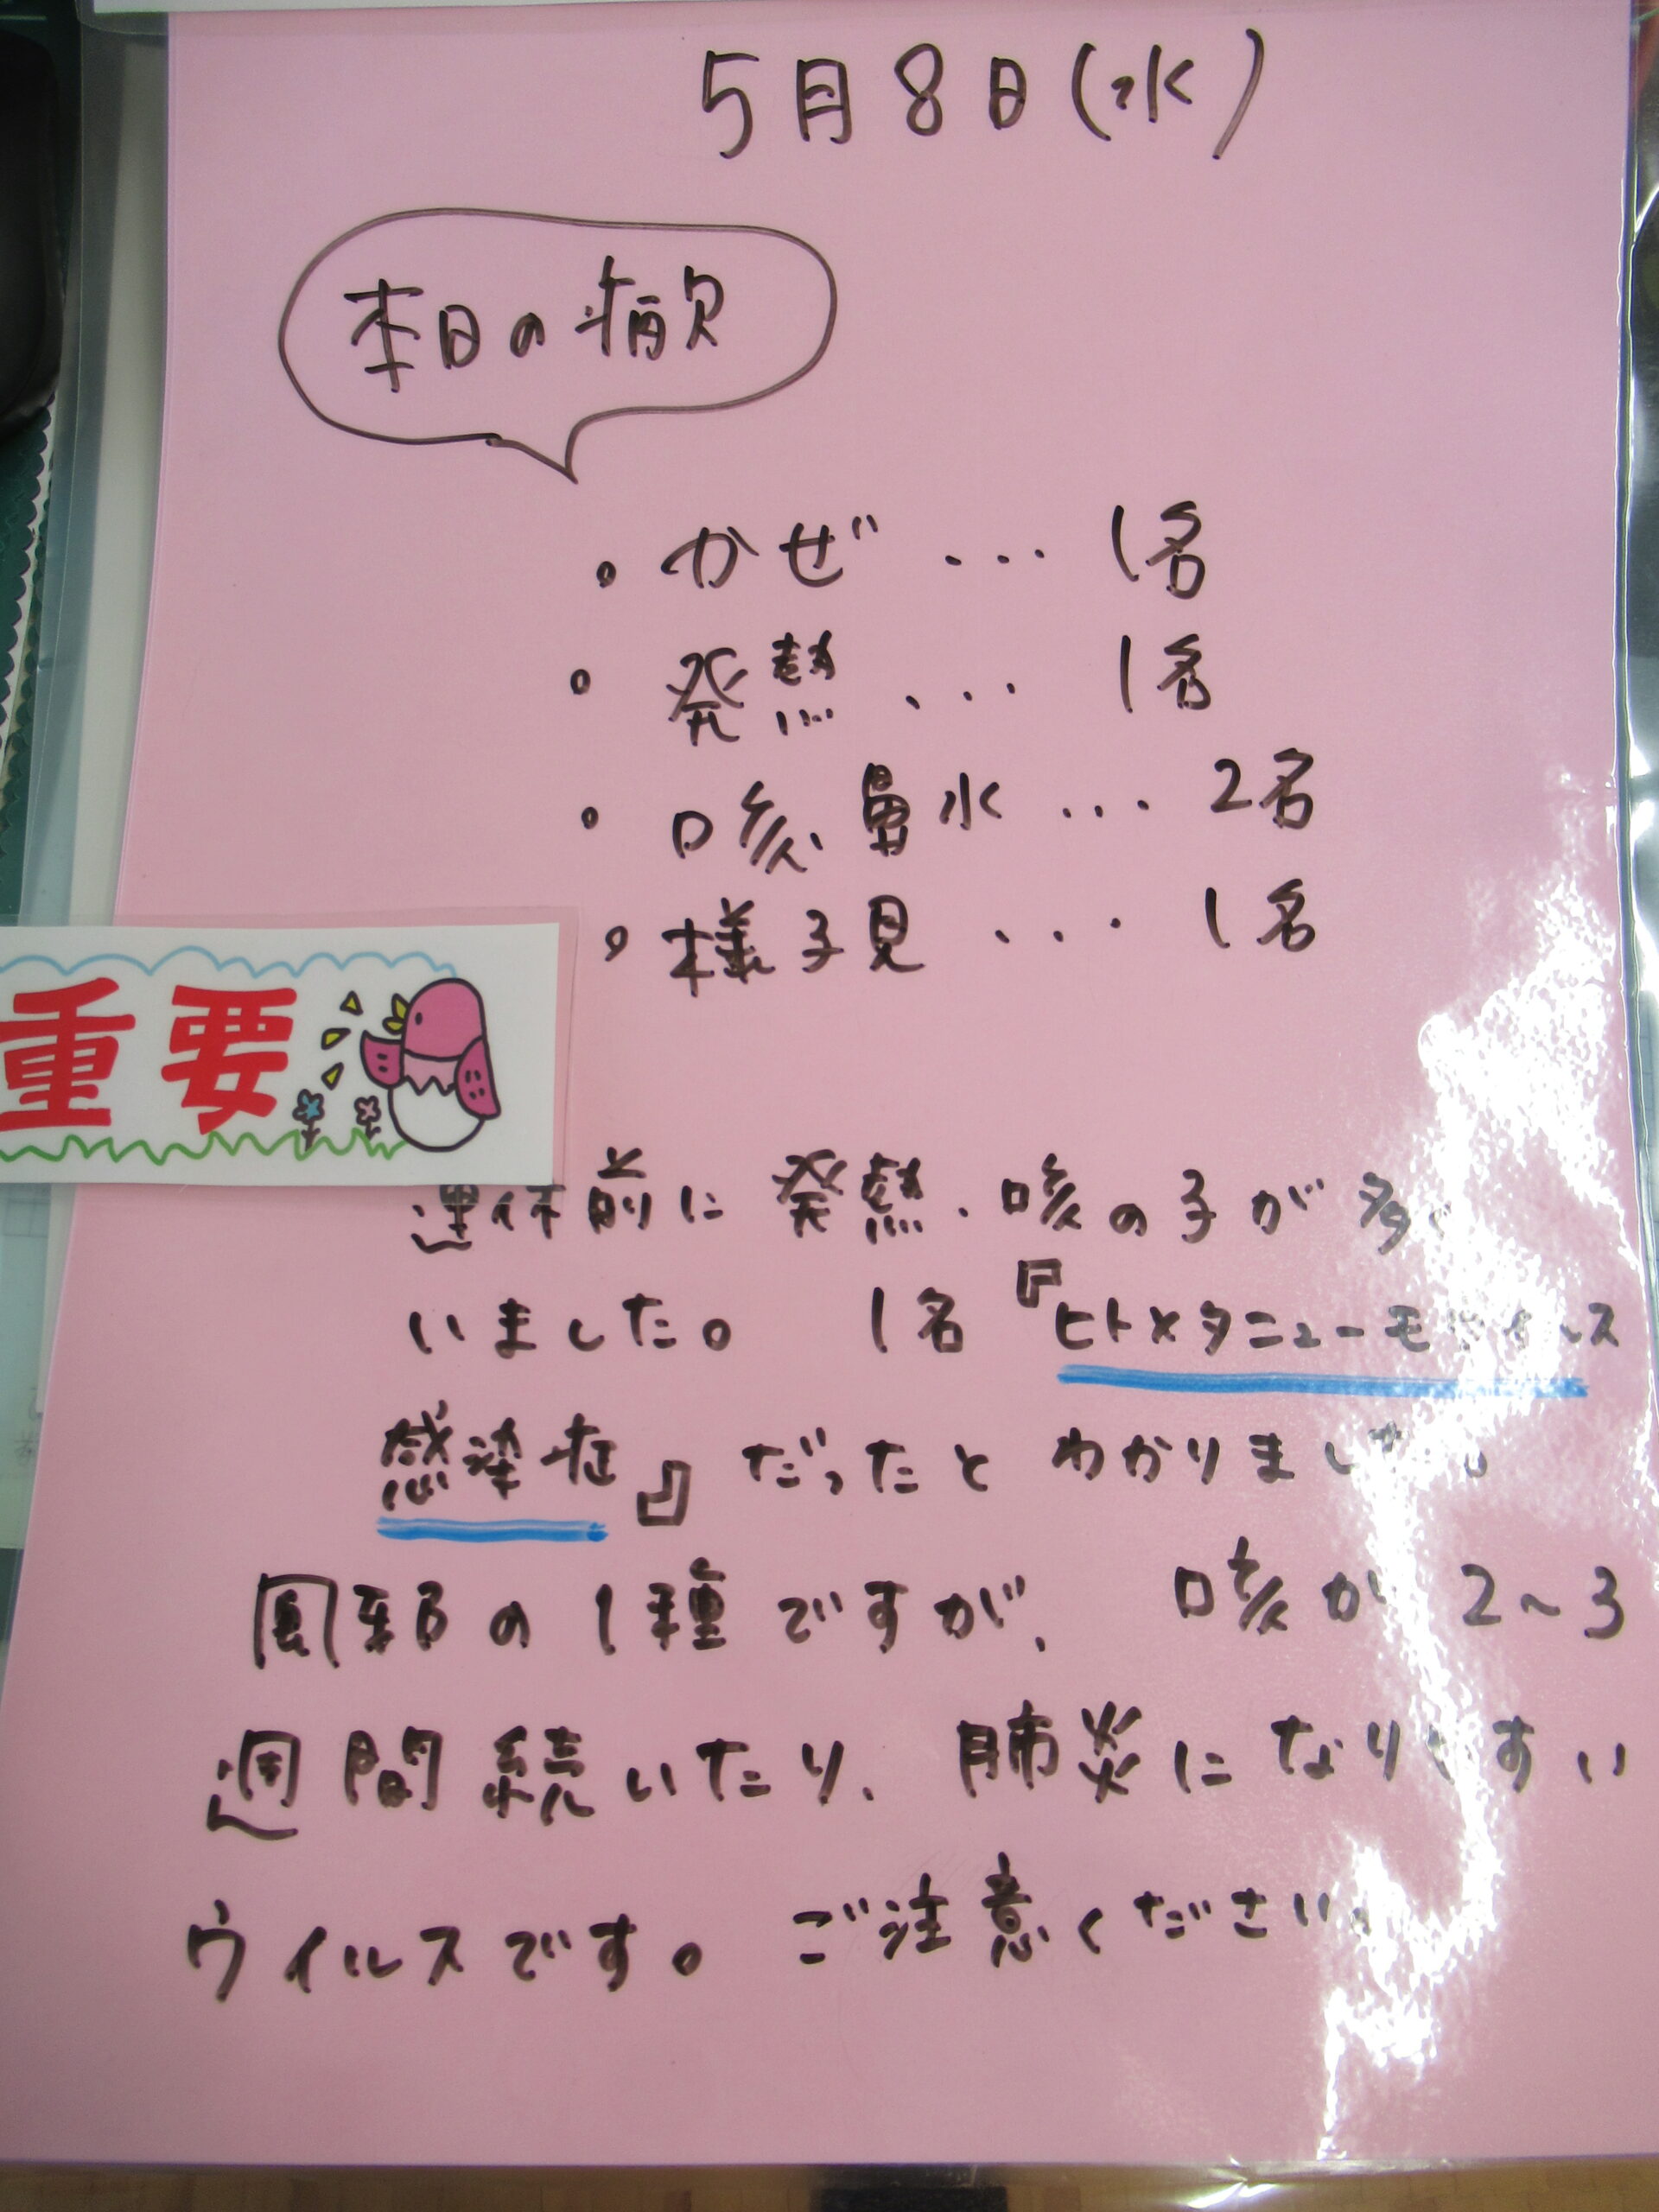 5月8日(水)
本日の病欠
・かぜ ... 1名
・発熱 ... 1名
・咳、鼻水 ... 2名
・様子見 ... 1名
重要
連休前に発熱、咳の子が多く
いました。 1名『ヒトメタニューモウイルス
感染症』だったとわかりました。
風邪の1種ですが、 咳が2~3
週間続いたり、肺炎になりやすい
ウイルスです。ご注意ください。